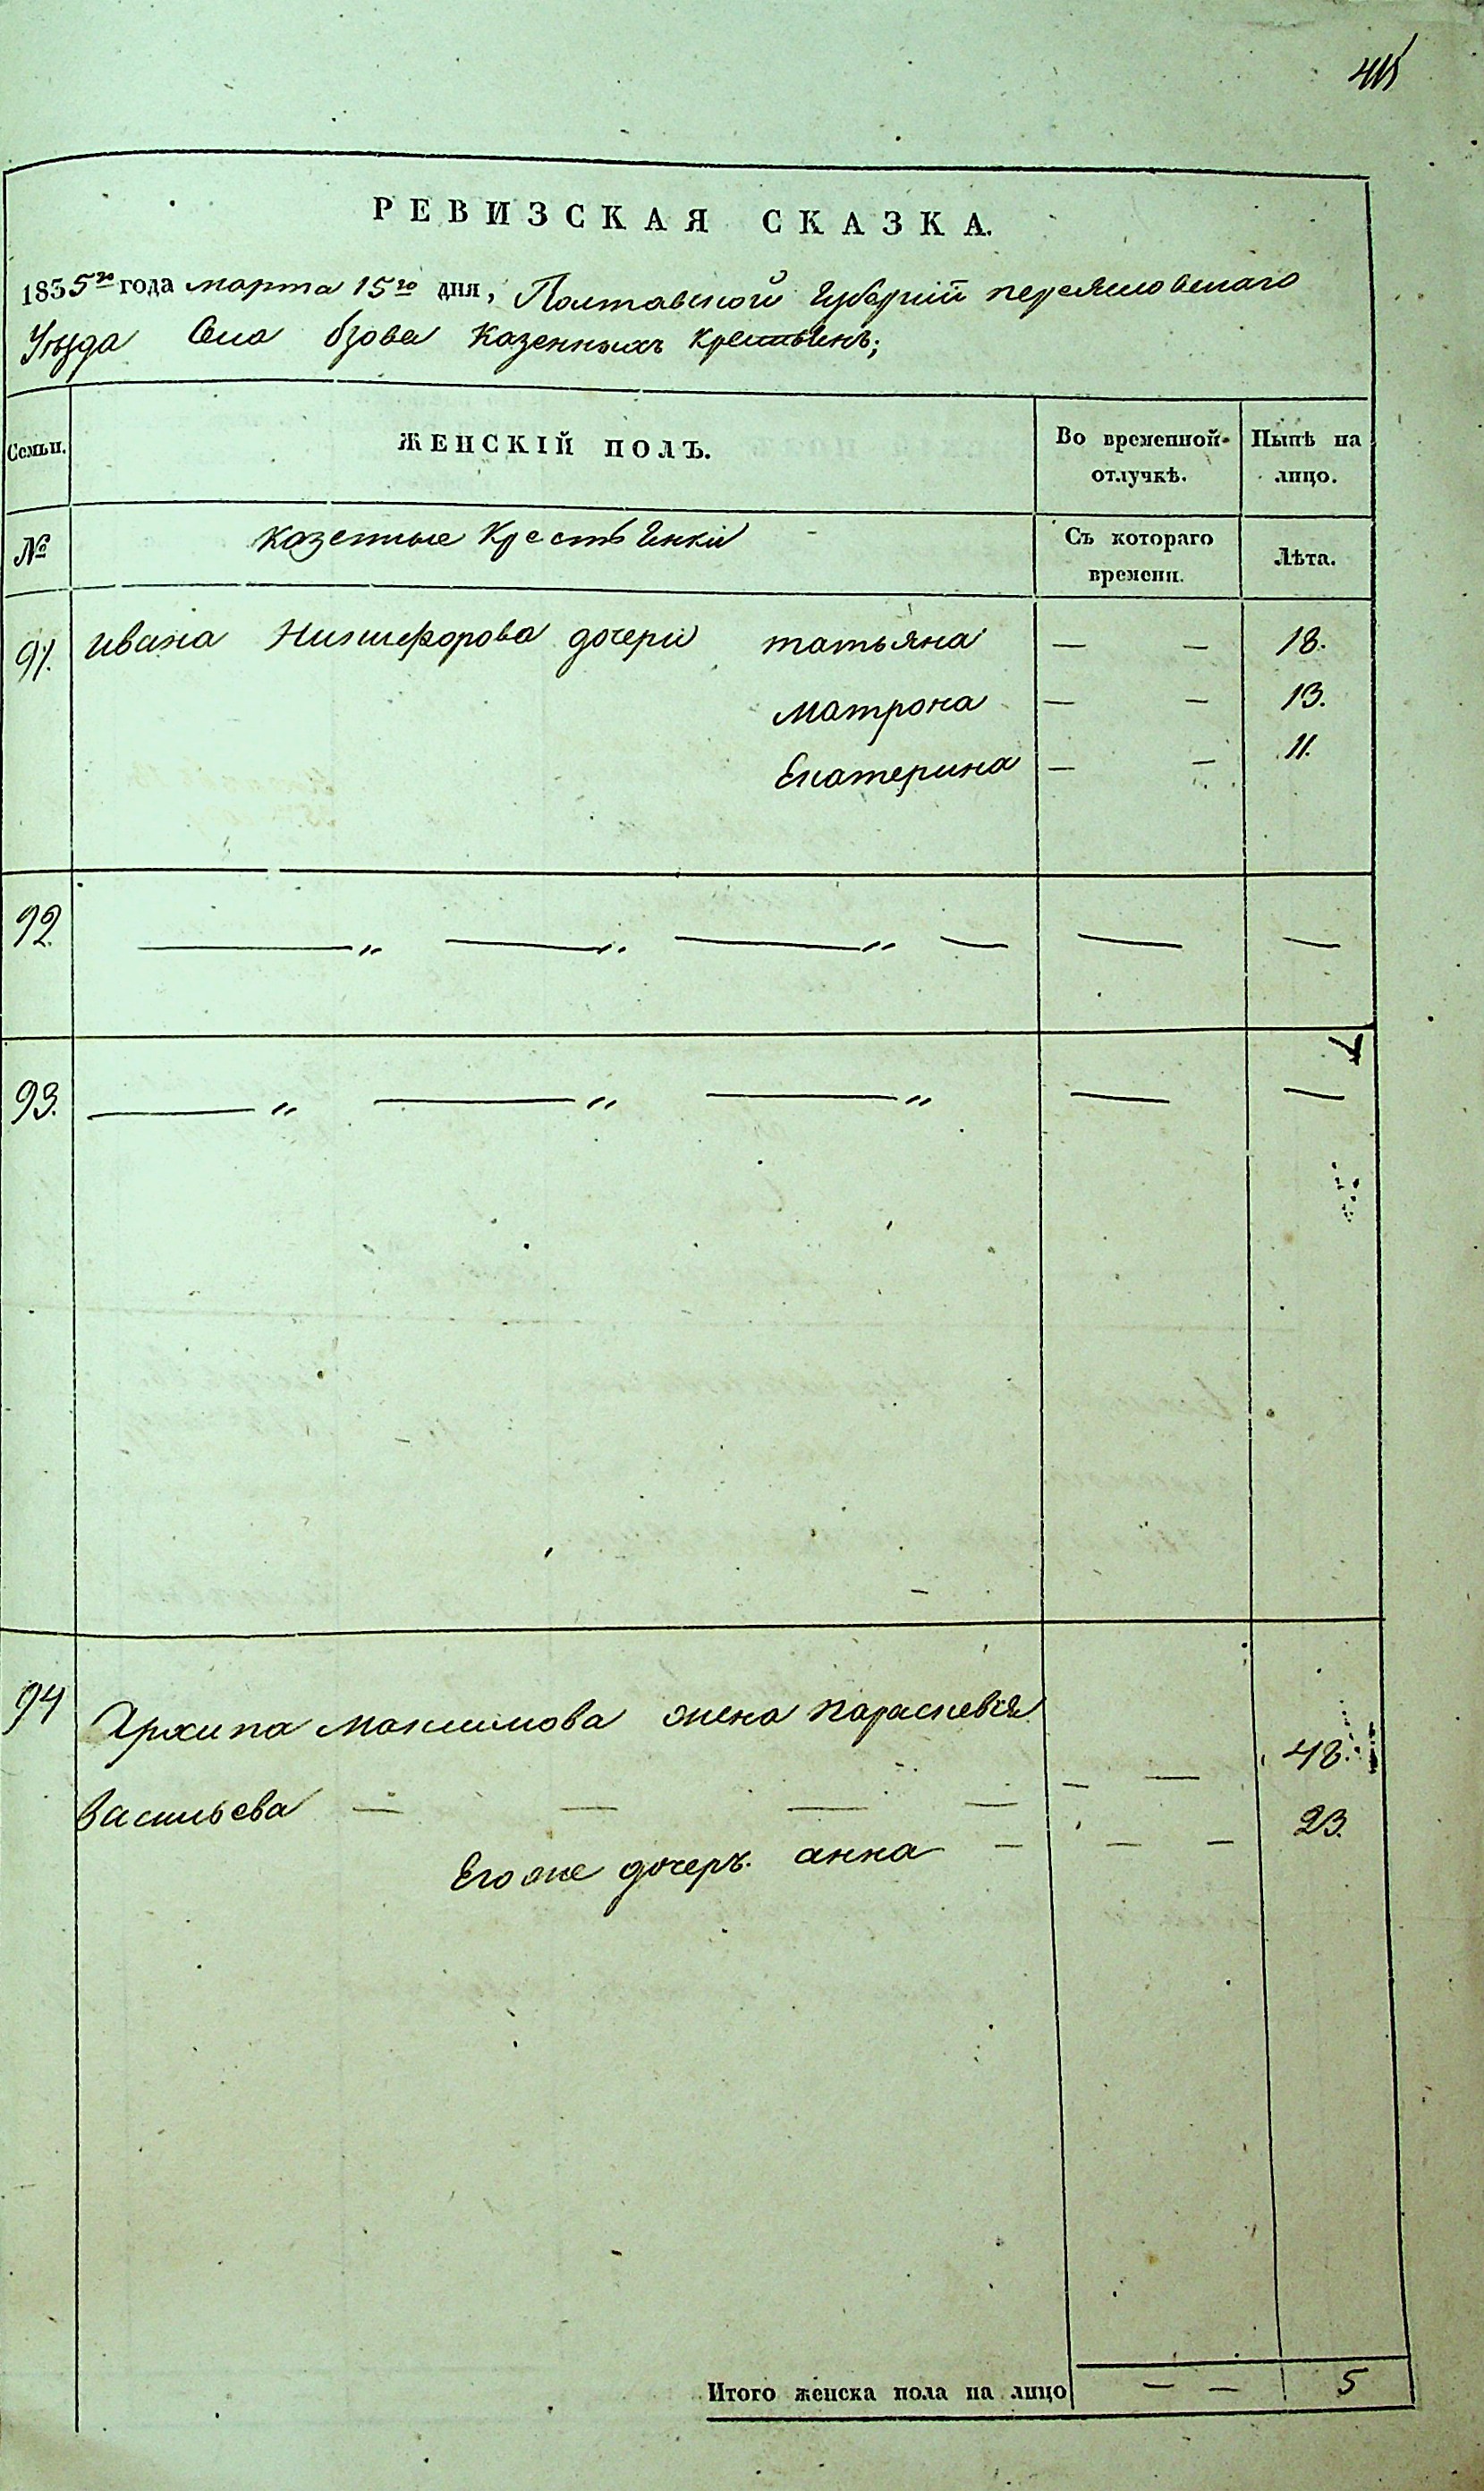 415
РЕВИЗСКАЯ СКАЗКА.
1835го года марта 15го дня, Полтавской Губерніи переясловскаго
Уѣзда Села бзова Казенныхъ крестьянъ;
Семьи. ЖЕНСКІЙ ПОЛЪ. Во временной отлучкѣ. Нынѣ на лицо.
№ казенные Крестьянки Съ котораго времени. Лѣта.
91. Ивана Никифорова дочери татьяна — — 18.
Матрона — — 13.
Екатерина — — 11.
92. — „ — „ — „ — — —
93. — „ — „ — „ — —
94 Архипа Максимова жена параскевія
Васильева — — — — — — 48.
Егоже дочерь. анна — — — 23.
Итого женска пола на лицо — — 5